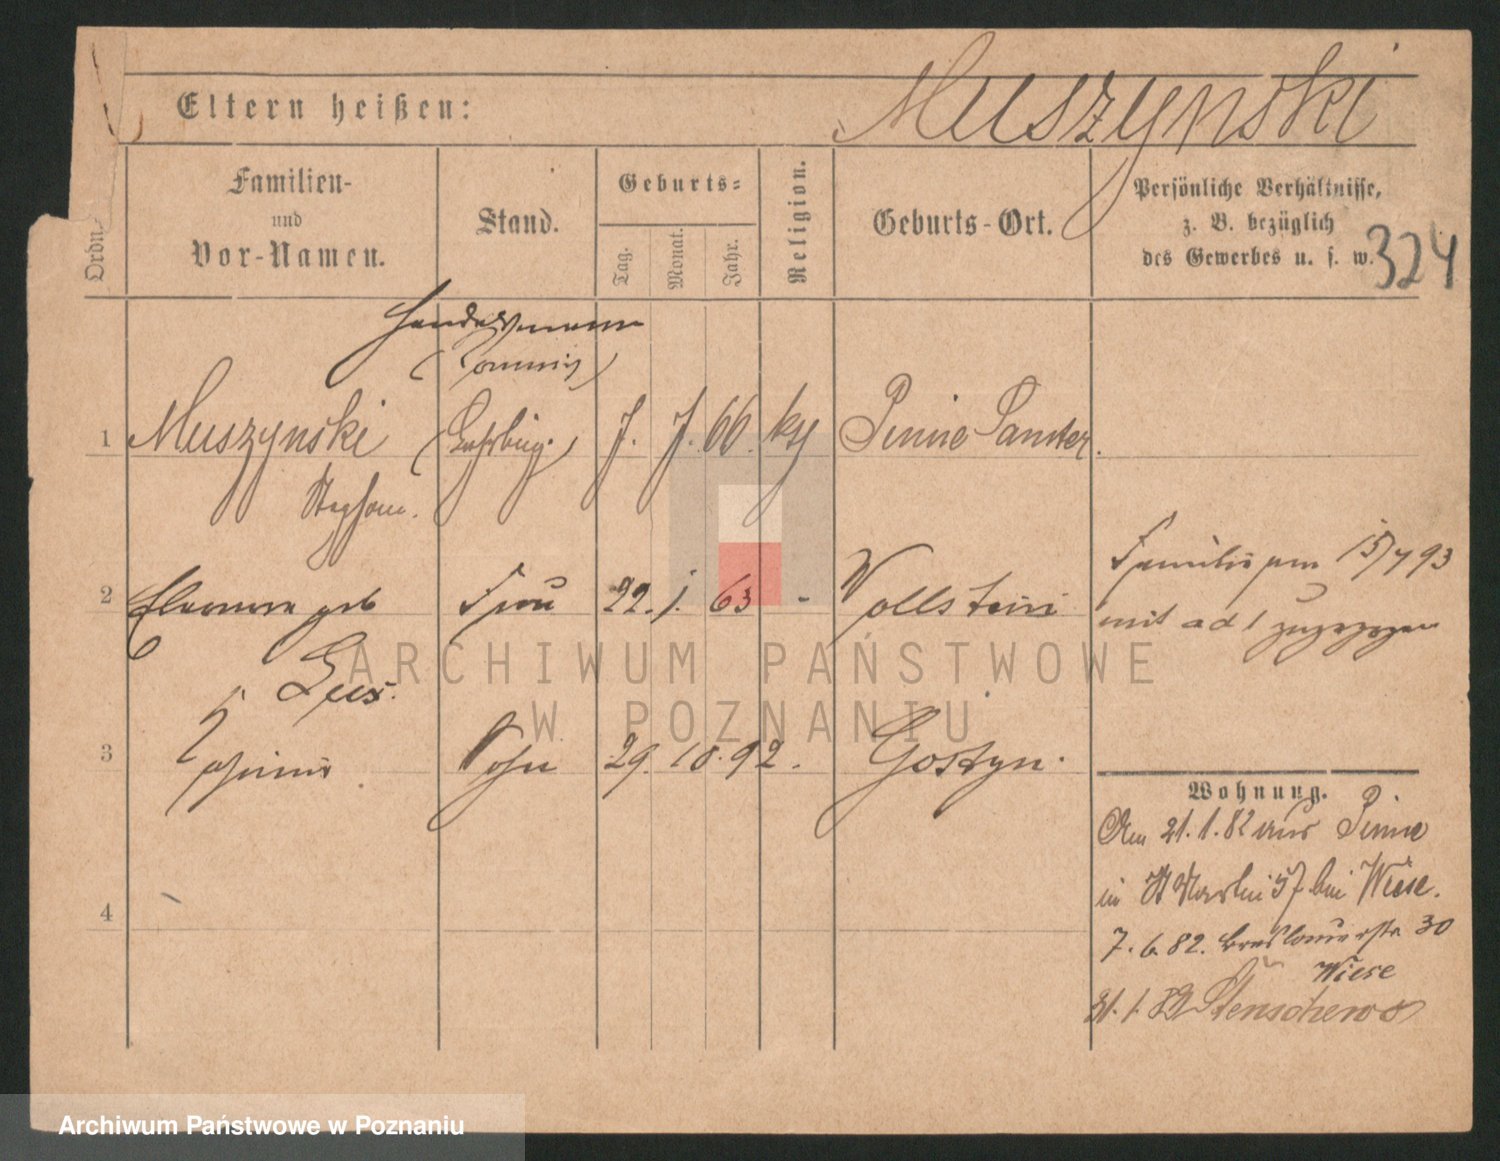 Eltern heißen:
Muszynski
Ordn.
Familien-
und
Vor-Namen.
Stand.
Geburts-
Tag.
Monat.
Jahr.
Religion.
Geburts-Ort.
Persönliche Verhältnisse,
z. B. bezüglich
des Gewerbes u. s. w.
324
Handelsmann
(Commis)
1 Muszynski 66. Pinne Samter.
Stephan.
2 Eleonora geb Frau 22. 1. 63 - Wollstein
Familie am 15/7 93
mit ad 1 zugezogen
3 Sohn 29. 10. 92. Gostyn.
Wohnung.
Am 21.1.82 aus Pinne
in St Martin 57 bei Wiese.
7.6.82. Breslauerstr 30
Wiese
4
31.1.82 Stenschewo
ARCHIWUM PAŃSTWOWE
W POZNANIU
Archiwum Państwowe w Poznaniu